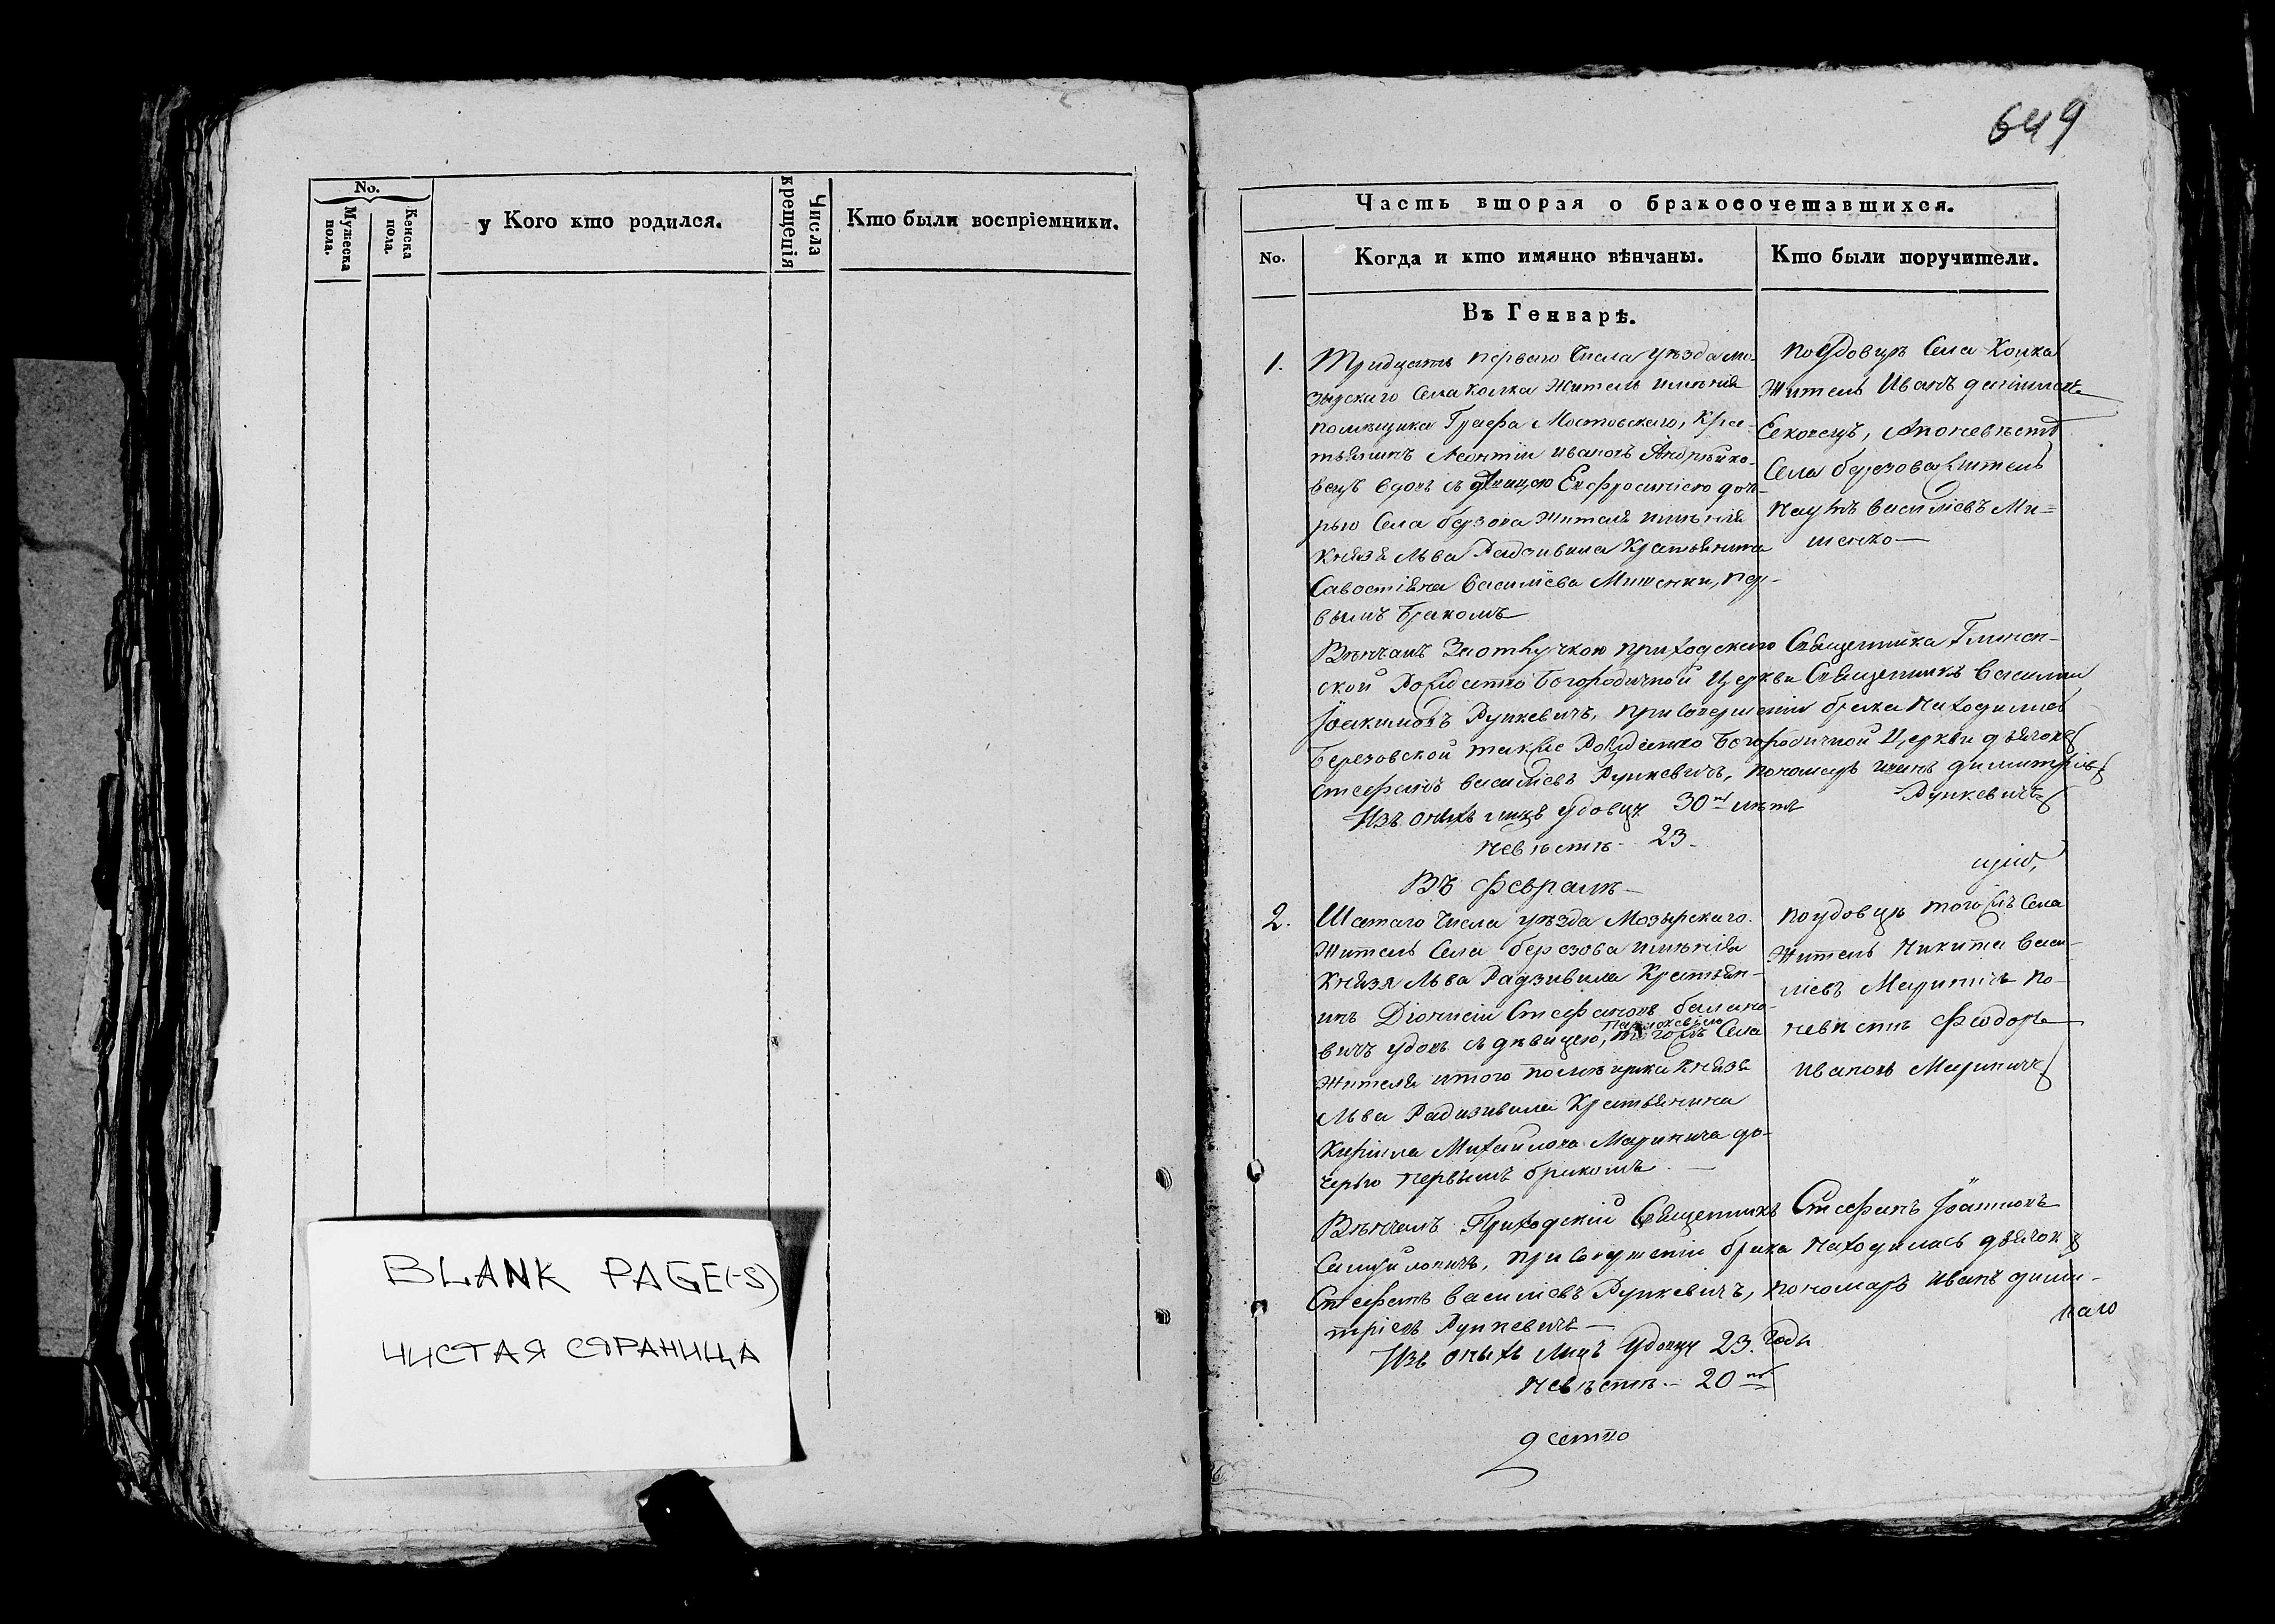 No.
Мужеска пола.
Женска пола.
у Кого кто родился.
Числа крещенія
Кто были воспріемники.
BLANK PAGE(-S)
ЧИСТАЯ СТРАНИЦА
649
Часть вторая о бракосочетавшихся.
No.
Когда и кто имянно вѣнчаны.
Кто были поручители.
Въ Генварѣ.
1.
Тридцать перваго Числа уѣзда мо-
зырскаго Села Колка Житель имѣнія
помѣщика Графа Мостовскаго, Кре-
стьянинъ Леонтій ивановъ Андрѣйко-
вецъ вдовъ съ дѣвицею Евфросиніею доч-
рью Села березова жителя имѣнія
Князя Льва Радзивила Крестьянина
Савостіяна Василіева Мишенки, пер-
вымъ бракомъ
по удовцѣ Села Колка
Житель Иванъ
Села березова житель
Василіевъ Ми=
шенко
Вѣнчалъ За отлучкою приходскаго Священника Глинен-
ской Рождество Богородичной Церкви Священникъ Василій
Іоакимовъ Рункевичъ, при совершеніи брака находились
Березовской такъже Рождество Богородичной Церкви дьячокъ
Стефанъ василіевъ Рункевичъ, пономарь иванъ димитріевъ
Рункевичъ
Изъ оныхъ лицъ удовцу 30ть лѣтъ
невѣстѣ 23
Въ февралѣ
2.
Шестаго Числа уѣзда Мозырскаго
Житель Села березова имѣнія
Князя Льва Радзивила Крестьян-
инъ Діонисій Стефановъ балано-
вичъ удовъ съ дѣвицею, тогожъ Села
Жителя итого помѣщика Князя
Льва Радизивила Крестьянина
Кирила Михайлова Маринича до-
черью первымъ бракомъ
по удовцѣ тогожъ Села
Житель Никита Васи-
ліевъ Мариничъ по
невѣстѣ Федоръ
Ивановъ Мариничъ
Вѣнчалъ Приходскій Священникъ Стефанъ Іоанновъ
при совершеніи брака находились дьячокъ
Стефанъ василіевъ Рункевичъ, пономарь Иванъ дими-
тріевъ Рункевичъ
Изъ оныхъ лицъ Удовцу 23. Годы
невѣстѣ 20ть